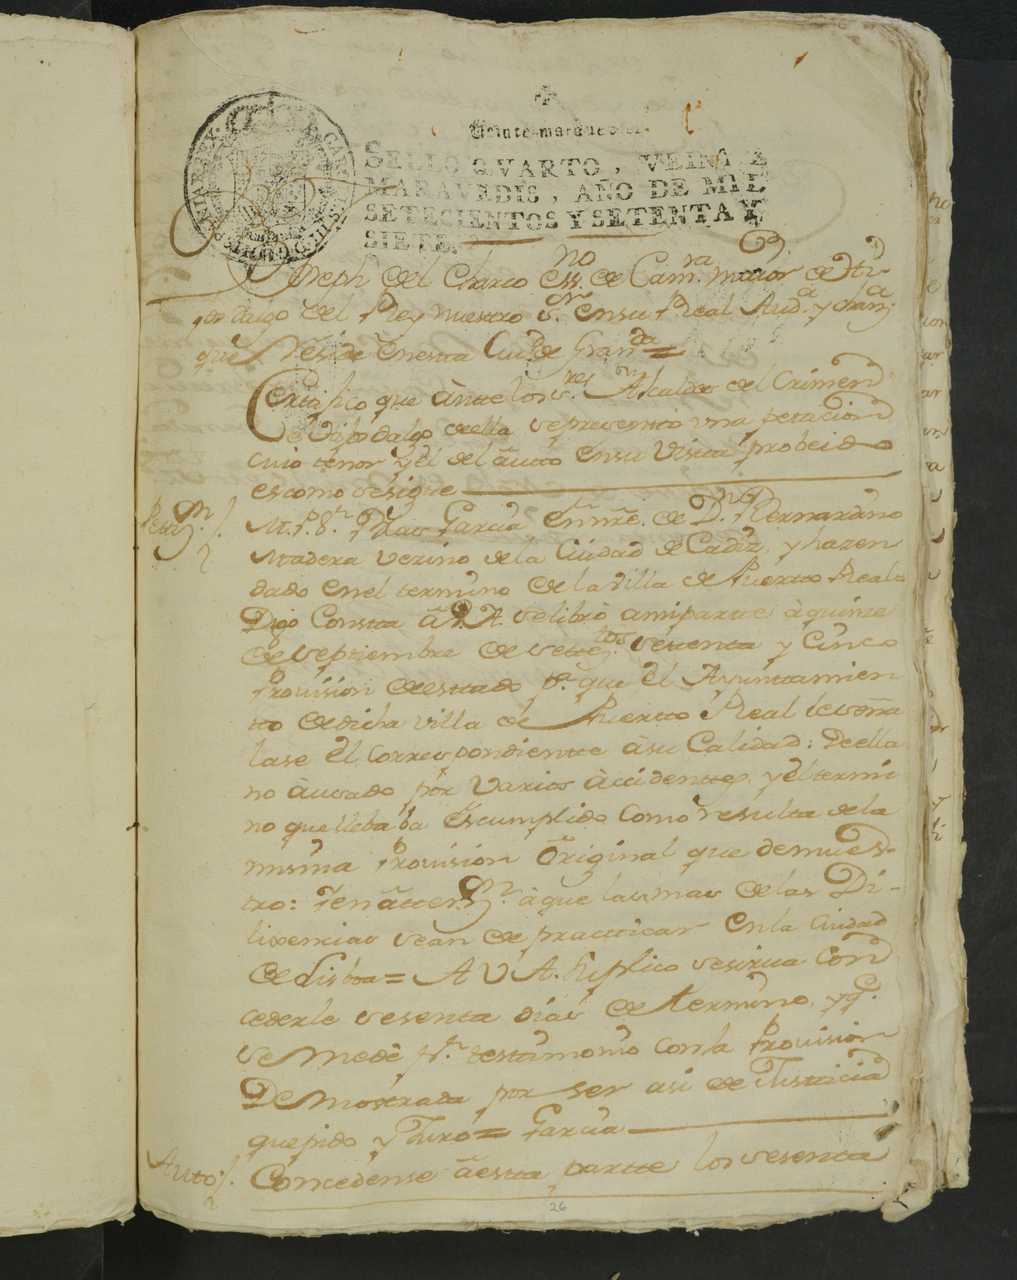 Veinte maravedis.
SELLO QVARTO, VEINTE
MARAVEDIS, AÑO DE MIL
SETECIENTOS Y SETENTA Y
SIETE.
Joseph del Charco essno. de Camra. maior de Hi
jos dalgo del Rey nuestro Sr. en su Real Auda. y Chanza.
que reside en esta Ciud. de Granda =
Certifico que ante los Sres. Alcaldes del Crimen
e Hijosdalgo de ella se presento vna peticion
cuio tenor y el del auto en su Vista probeido
es como se sigue
Petizn.
M. P. Sr. Blas Garcia en nre. de Dn. Bernardino
Madera vezino de la Ciudad de Cadiz, y hazen
dado en el termino de la villa de Puertto Real
Digo Consta a V. A. se libró a mi parte à quinze
de septiembre de settezos. setenta y Cinco
Provision de estado pa. que el Ayuntamien
tto de dicha villa de Puertto Real le señа
lase el correspondiente à su Calidad: de ella
no à usado por Varios àccidenttes, y el termi
no que llebaba es cumplido como resulta de la
misma Provision Original que demues-
tro: Ten atten.zn. à que las mas de las Di-
lixencias sean de practicar en la Ciudad
de Lisboa = A V. A. suplico se sirva Con
cederle sesenta dias de termino, y q.
se me dè pr. testimonio con la Provision
Demostrada por ser asi de Justicia
que pido y Juro = Garcia
Auto
Concedense a esta partte los sesenta
26